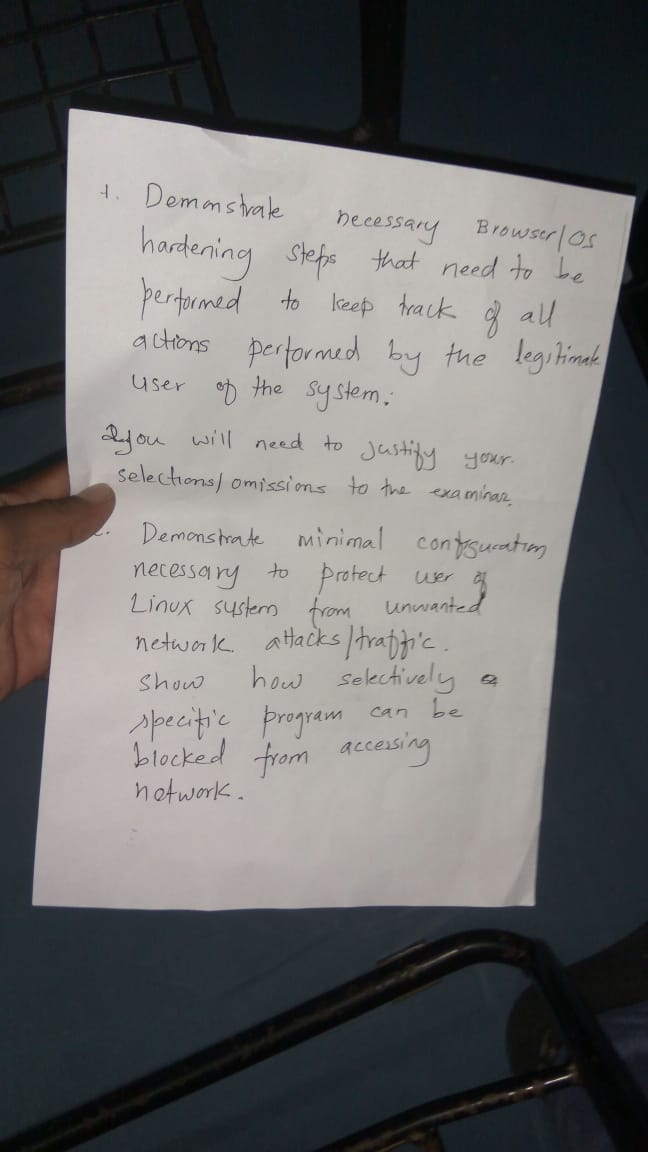 1. Demonstrate necessary Browser/OS
hardening steps that need to be
performed to keep track of all
actions performed by the legitimate
user of the system.
you will need to justify your
selections/omissions to the examinar.
Demonstrate minimal configuration
necessary to protect user of
Linux system from unwanted
network attacks/traffic.
show how selectively a
specific program can be
blocked from accessing
network.